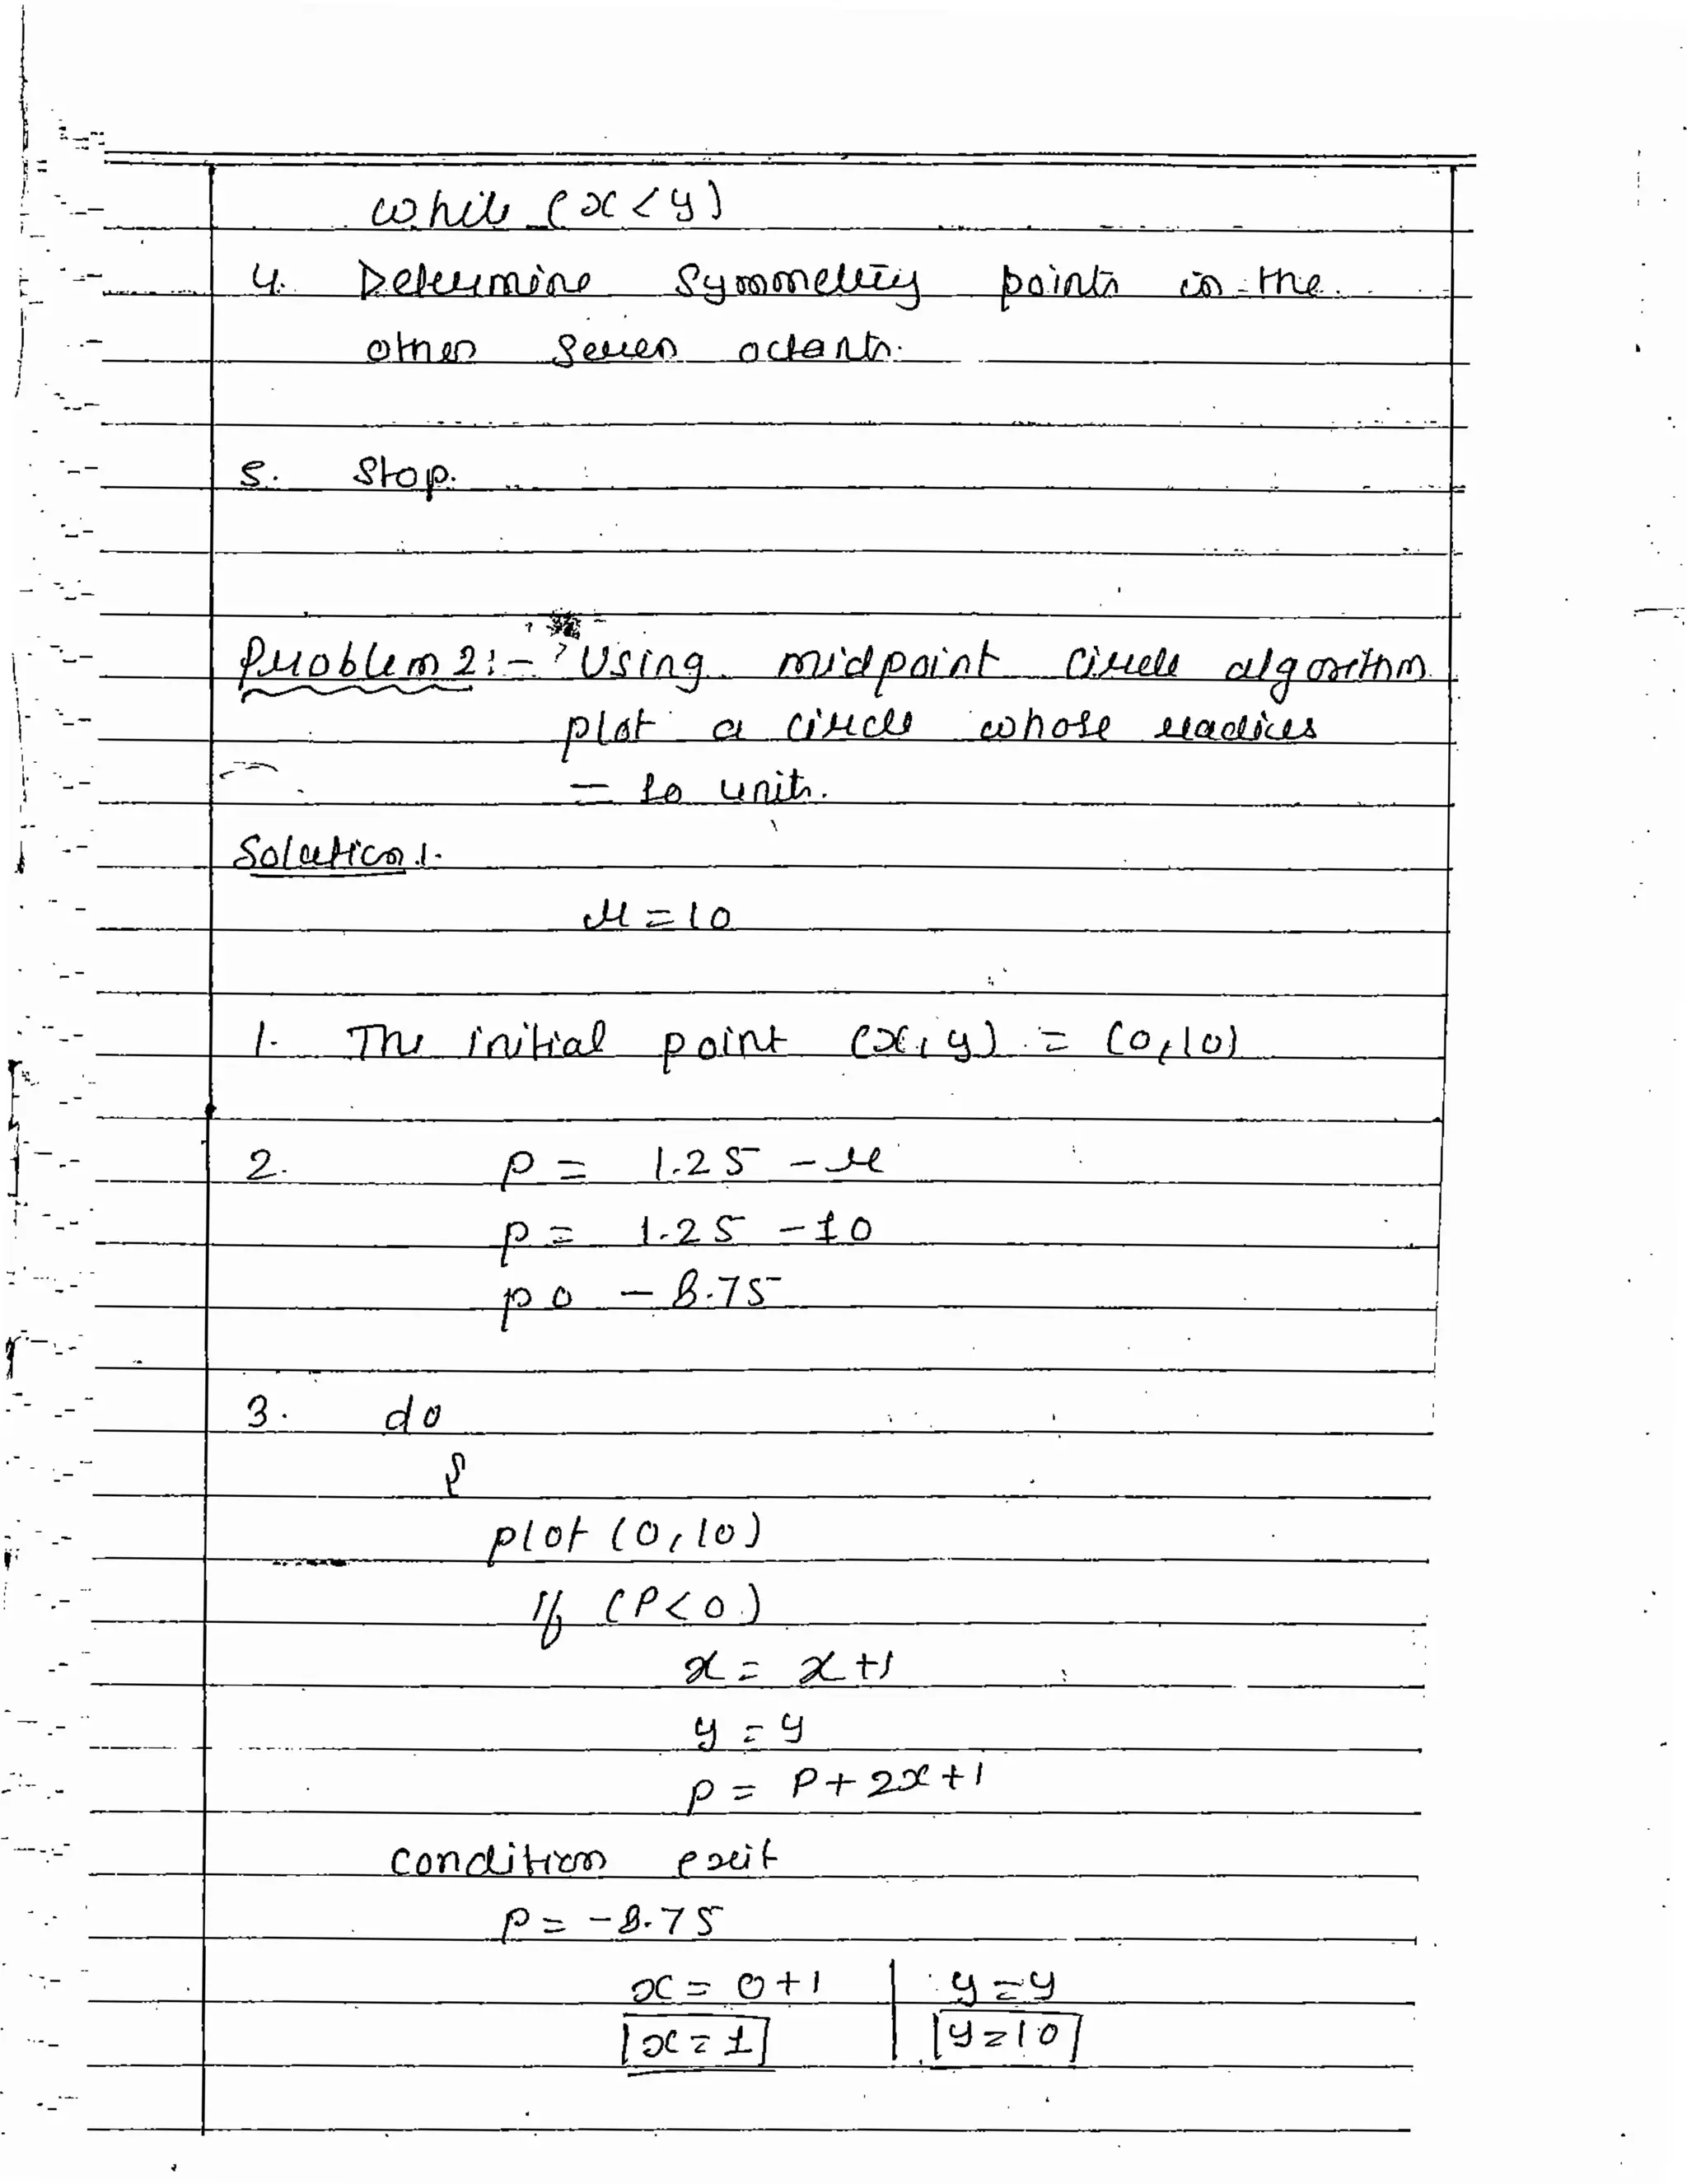 while (x<y)
4. Determine Symmetry points in the
other seven octants.
5. Stop.
Problem 2:- Using midpoint circle algorithm
plot a circle whose radius
= 10 units.
Solution 1.
r = 10
1. The initial point (x, y) = (0,10)
2. p = 1.25 - r
p = 1.25 - 10
p 0 - 8.75
3. do
{
plot (0,10)
If (P<0)
x = x+1
y = y
p = P+2x+1
condition exit
p = -8.75
x = 0+1 | y = y
x = 1 | y = 10